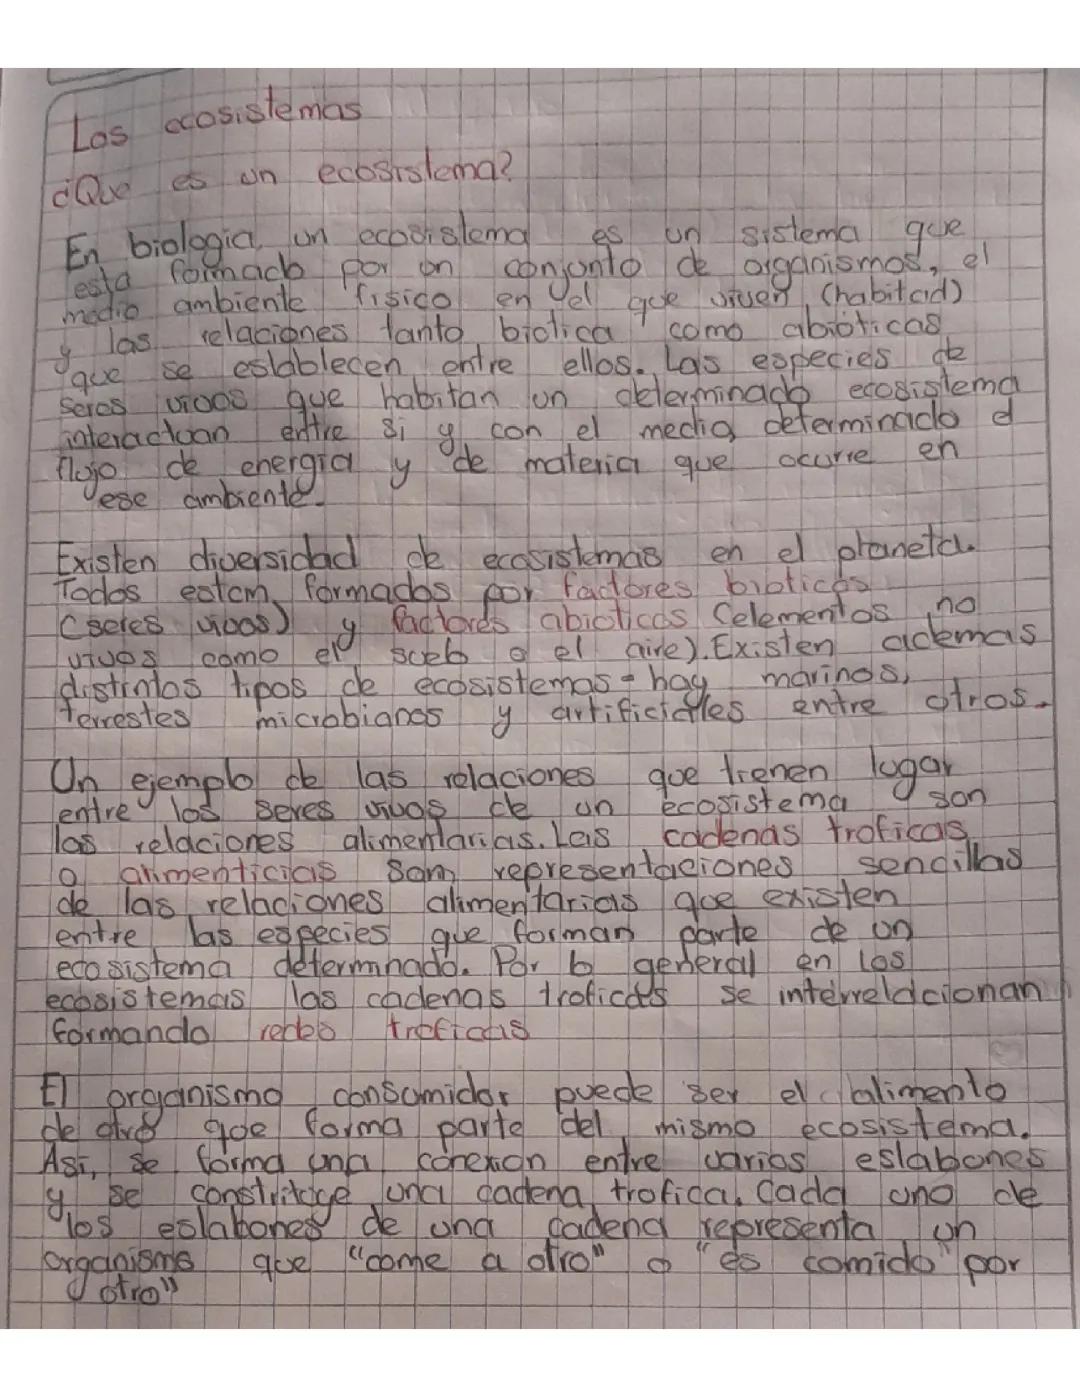 Los ecosistemas
¿Que es un ecosistema?
En biologia, un ecosistema es un sistema que
esta formado por un conjunto de organismos, el
medio ambiente fisico en el que viven (habitad)
y las relaciones tanto biotica como abióticas
que se establecen entre ellos. Las especies de
seres vivos que habitan un determinado ecosistema
interactuan entre si y con el medio, determinado el
flujo de energia y de materia que ocurre en
ese ambiente.
Existen diversidad de ecosistemas en el planeta.
Todos estam formados por factores bioticos
(seres vivos) y factores abioticos (elementos no
vivos como el sueb o el aire). Existen ademas
distintos tipos de ecosistemas - hay marinos,
terrestes microbianos y artificiales entre otros.
Un ejemplo de las relaciones que tienen lugar
entre los seres vivos de un ecosistema son
las relaciones alimentarias. Las cadenas troficas
o alimenticias som representaciones sencillas
de las relaciones alimentarias que existen
entre las especies que forman parte de un
ecosistema determinado. Por lo general en los
ecosistemas las cadenas troficas se interrelacionan
formando redes troficas
El organismo consumidor puede ser el alimento
de otro que forma parte del mismo ecosistema.
Asi, se forma una conexion entre varios eslabones
y se constituye una cadena trofica. Cada uno de
los eslabones de una cadena representa un
organismo que "come a otro" o "es comido por
otro"